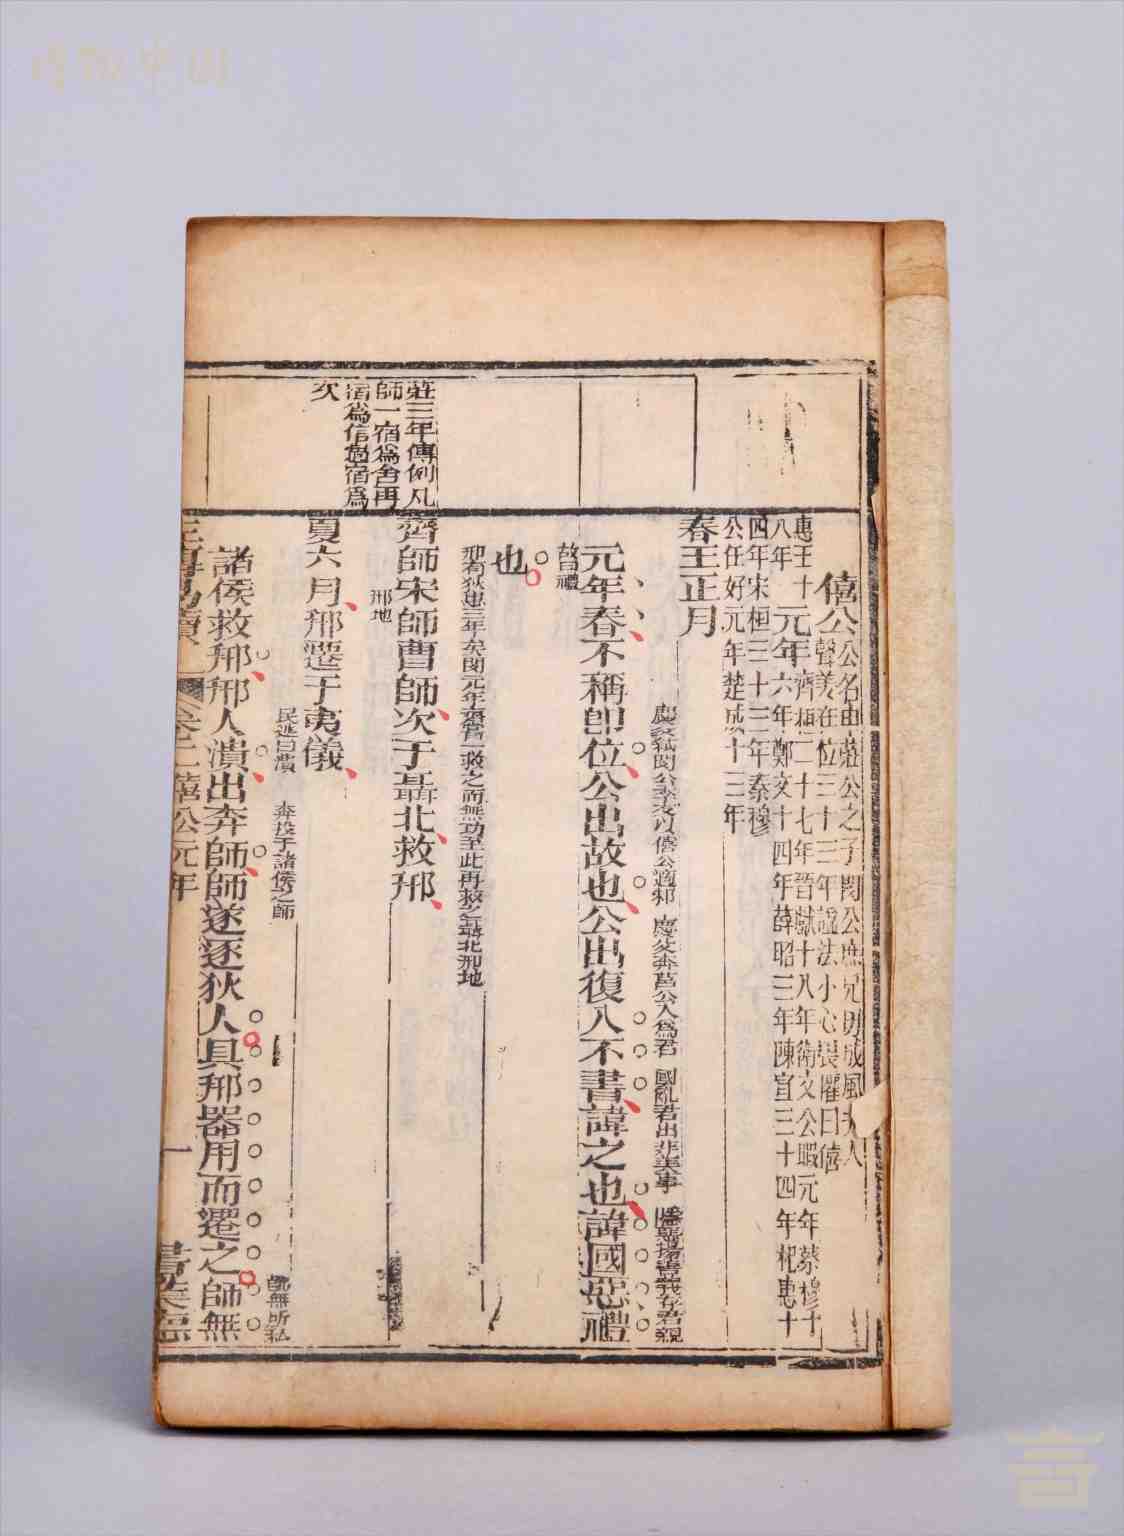 博物中国
僖公
公名申莊公之子閔公庶兄母成風夫人
聲姜在位三十三年諡法小心畏懼曰僖
惠王十
八年
元年
齊桓二十七年晉獻十八年衛文公燬元年蔡穆十
六年鄭文十四年薛昭三年陳宣三十四年杞惠十
四年宋桓三十三年秦穆
公任好元年楚成十三年
春王正月
元年春不稱卽位公出故也公出復入不書諱之也諱國惡禮
慶父弒閔公季友以僖公適邾
慶父奔莒公入爲君
國亂君出非美事
故曰禮
也
邢有狄患三年矣閔元年齊管一救之而無功至此再救之聶北邢地
莊三年傳例凡
師一宿爲舍再
宿爲信過宿爲
次
齊師宋師曹師次于聶北救邢
邢地
夏六月邢遷于夷儀
民逃曰潰
奔投于諸侯之師
師無所私
諸侯救邢邢人潰出奔師師遂逐狄人具邢器用而遷之師無
卷二 僖公元年
一
言